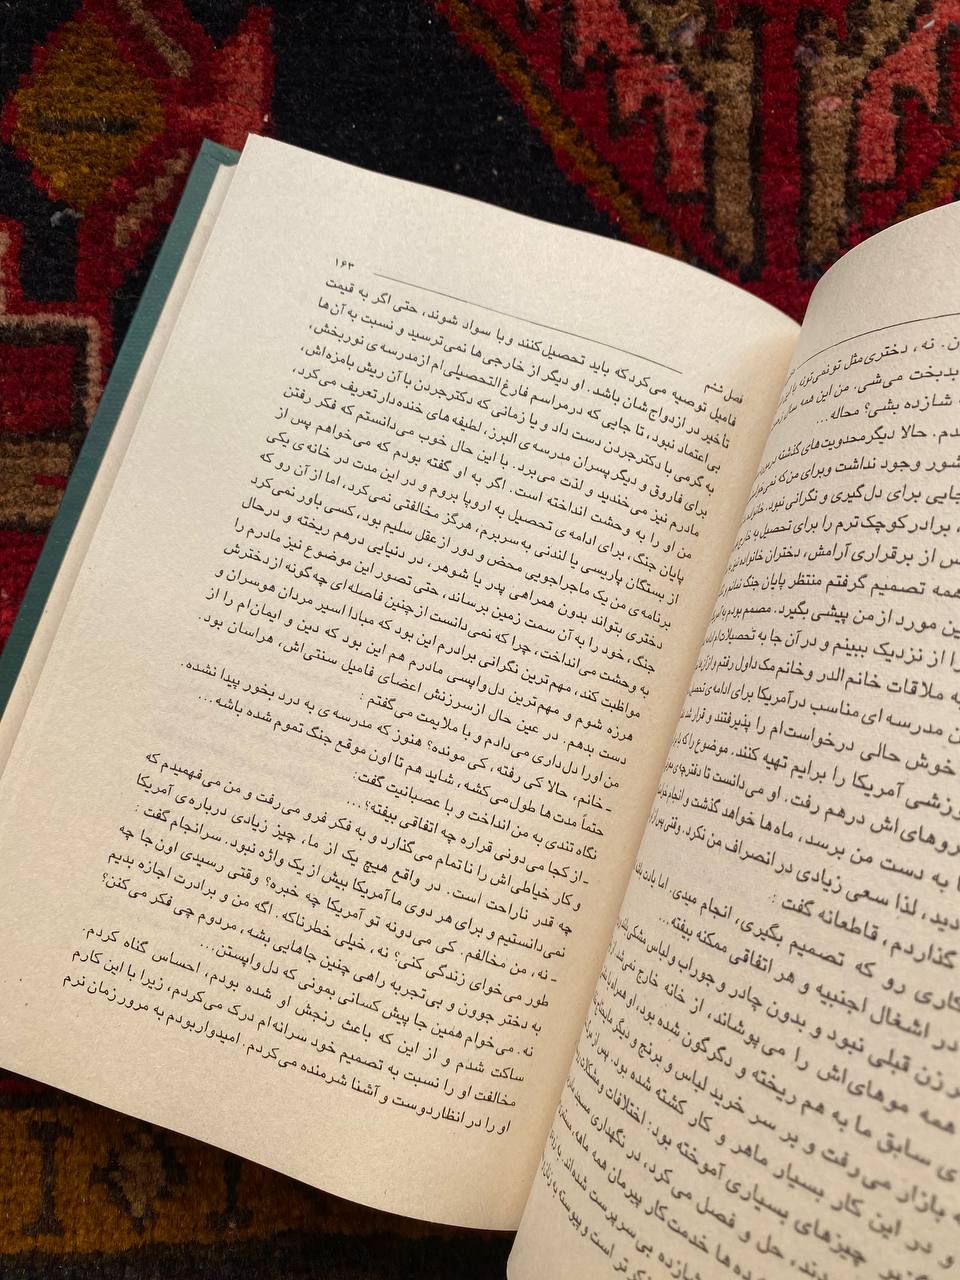 فصل ششم
۱۶۳
فامیل توصیه می‌کرد که باید تحصیل کنند و با سواد شوند، حتی اگر به قیمت
تأخیر در ازدواج‌شان باشد. او دیگر از خارجی‌ها نمی‌ترسید و نسبت به آن‌ها
بی‌اعتماد نبود، تا جایی که در مراسم فارغ‌التحصیلی‌ام از مدرسه‌ی نوربخش،
به گرمی با دکتر جردن دست داد و یا زمانی که دکتر جردن با آن ریش بامزه‌اش،
برای فاروق و دیگر پسران مدرسه‌ی البرز، لطیفه‌های خنده‌دار تعریف می‌کرد،
مادرم نیز می‌خندید و لذت می‌برد. با این حال خوب می‌دانستم که فکر رفتن
من او را به وحشت انداخته است. اگر به او گفته بودم که می‌خواهم پس از
پایان جنگ، برای ادامه‌ی تحصیل به اروپا بروم و در این مدت در خانه‌ی یکی
از بستگان پاریسی یا لندنی به سر برم، هرگز مخالفتی نمی‌کرد، اما از آن رو که
برنامه‌ی من یک ماجراجویی محض و دور از عقل سلیم بود، کسی باور نمی‌کرد
دختری بتواند بدون همراهی پدر یا شوهر، در دنیایی درهم ریخته و در حال
جنگ، خود را به آن سمت زمین برساند، حتی تصور این موضوع نیز مادرم را
به وحشت می‌انداخت، چرا که نمی‌دانست از چنین فاصله‌ای چه گونه از دخترش
مواظبت کند، مهم‌ترین نگرانی برادرم این بود که مبادا اسیر مردان هوسران و
هرزه شوم و مهم‌ترین دل‌واپسی مادرم هم این بود که دین و ایمان‌ام را از
دست بدهم. در عین حال از سرزنش اعضای فامیل سنتی‌اش، هراسان بود.
من او را دل‌داری می‌دادم و با ملایمت می‌گفتم :
ـ خانم، حالا کی رفته، کی مونده؟ هنوز که مدرسه‌ی به درد بخور پیدا نشده.
حتماً مدت ها طول می‌کشه، شاید هم تا اون موقع جنگ تموم شده باشه...
نگاه تندی به من انداخت و با عصبانیت گفت:
ـ از کجا می‌دونی قراره چه اتفاقی بیفته؟...
و کار خیاطی‌اش را ناتمام می‌گذارد و به فکر فرو می‌رفت و من می‌فهمیدم که
چه قدر ناراحت است. در واقع هیچ یک از ما، چیز زیادی درباره‌ی آمریکا
نمی‌دانستیم و برای هر دوی ما آمریکا بیش از یک واژه نبود. سرانجام گفت :
ـ نه، من مخالفم. کی می‌دونه تو آمریکا چه خبره؟ وقتی رسیدی اون‌جا چه
طور می‌خوای زندگی کنی؟ نه، خیلی خطرناکه. اگه من و برادرت اجازه بدیم
یه دختر جوون و بی‌تجربه راهی چنین جاهایی بشه، مردوم چی فکر می‌کنن؟
نه. می‌خوام همین جا پیش کسانی بمونی که دل واپستن...
ساکت شدم و از این که باعث رنجش او شده بودم، احساس گناه کردم.
مخالفت او را نسبت به تصمیم خود سرانه‌ام درک می‌کردم، زیرا با این کارم
او را در انظار دوست و آشنا شرمنده می‌کردم. امیدوار بودم به مرور زمان نرم
ن. نه، دختری مثل تو نمی‌تونه با این
بدبخت می‌شی. من این همه سال
شازده بشی؟ محاله...
دم. حالا دیگر محدویت‌های گذشته
شور وجود نداشت و برای من که
جایی برای دل‌گیری و نگرانی نبود.
، برادر کوچک‌ترم را برای تحصیل به
س از برقراری آرامش، دختران خانواده نیز
همه تصمیم گرفتم منتظر پایان جنگ نمانم و
ین مورد از من پیشی بگیرد. مصمم بودم به
را از نزدیک ببینم و در آن جا به تحصیلات‌ام
به ملاقات خانم الدر و خانم مک‌داول رفتم و از آن‌ها
ن مدرسه ای مناسب در آمریکا برای ادامه‌ی تحصیل
خوش حالی درخواست‌ام را پذیرفتند و قرار شد
وزشی آمریکا را برایم تهیه کنند. موضوع را که با
روهای‌اش درهم رفت. او می‌دانست تا دفترچه‌ی
ا به دست من برسد، ماه‌ها خواهد گذشت و انجام
دید، لذا سعی زیادی در انصراف من نکرد. وقتی پس از
گذاردم، قاطعانه گفت :
کاری رو که تصمیم بگیری، انجام میدی. اما یادت باشه
در اشغال اجنبیه و هر اتفاقی ممکنه بیفته...
ر زن قبلی نبود و بدون چادر و جوراب و لباس مشکی
همه موهای‌اش را می‌پوشاند، از خانه خارج نمی‌شد.
ی سابق ما به هم ریخته و دگرگون شده بود، او همراه
ه بازار می‌رفت و بر سر خرید لباس و برنج و دیگر مایحتاج
و در این کار بسیار ماهر و کار کشته شده بود. پس از
چیزهای بسیاری آموخته بود: اختلافات و مشکلات
دند، حل و فصل می‌کرد، در نگهداری مسجد
ده‌ها خدمت‌کار پیرمان همه ماهه، مستمری
شازده بی سرپرست شده‌اند، به
کر تر است و پیوسته به زنان